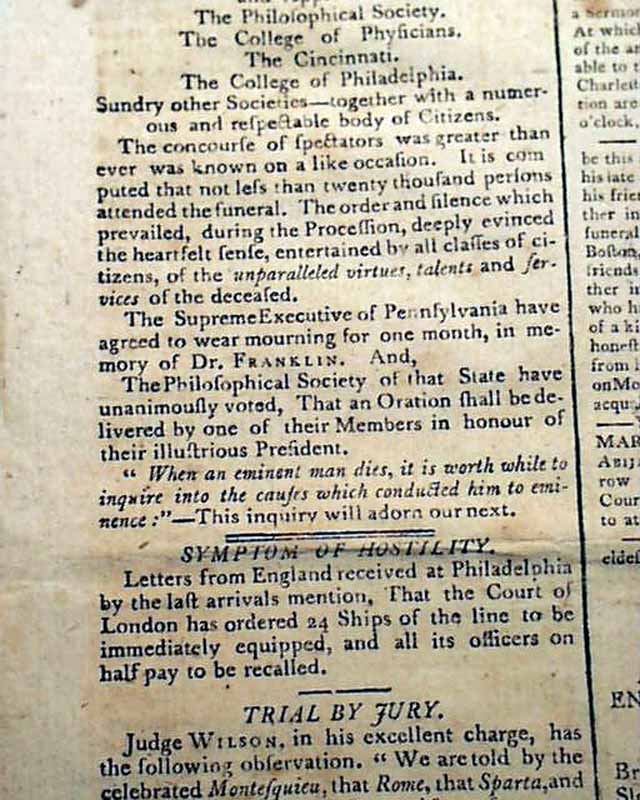 The Philoſophical Society.
The College of Phyſicians.
The Cincinnati.
The College of Philadelphia.
Sundry other Societies—together with a numer-
ous and reſpectable body of Citizens.
The concourſe of ſpectators was greater than
ever was known on a like occaſion. It is com
puted that not leſs than twenty thouſand perſons
attended the funeral. The order and ſilence which
prevailed, during the Proceſſion, deeply evinced
the heartfelt ſenſe, entertained by all claſſes of ci-
tizens, of the unparalleled virtues, talents and ſer-
vices of the deceaſed.
The Supreme Executive of Pennſylvania have
agreed to wear mourning for one month, in me-
mory of Dr. FRANKLIN. And,
The Philoſophical Society of that State have
unanimouſly voted, That an Oration ſhall be de-
livered by one of their Members in honour of
their illuſtrious Preſident.
“ When an eminent man dies, it is worth while to
inquire into the cauſes which conducted him to emi-
nence :”—This inquiry will adorn our next.
SYMPTOM OF HOSTILITY.
Letters from England received at Philadelphia
by the laſt arrivals mention, That the Court of
London has ordered 24 Ships of the line to be
immediately equipped, and all its officers on
half pay to be recalled.
TRIAL BY JURY.
Judge WILSON, in his excellent charge, has
the following obſervation. “ We are told by the
celebrated Monteſquieu, that Rome, that Sparta, and
a Sermon
At which
of the
able to
tion are
o'clock,
be this
his late
his
ther in
funeral
Boſton,
friends
ther in
who
of a
honeſt
from
on
MAR
row
Cour
to at
EN
Br